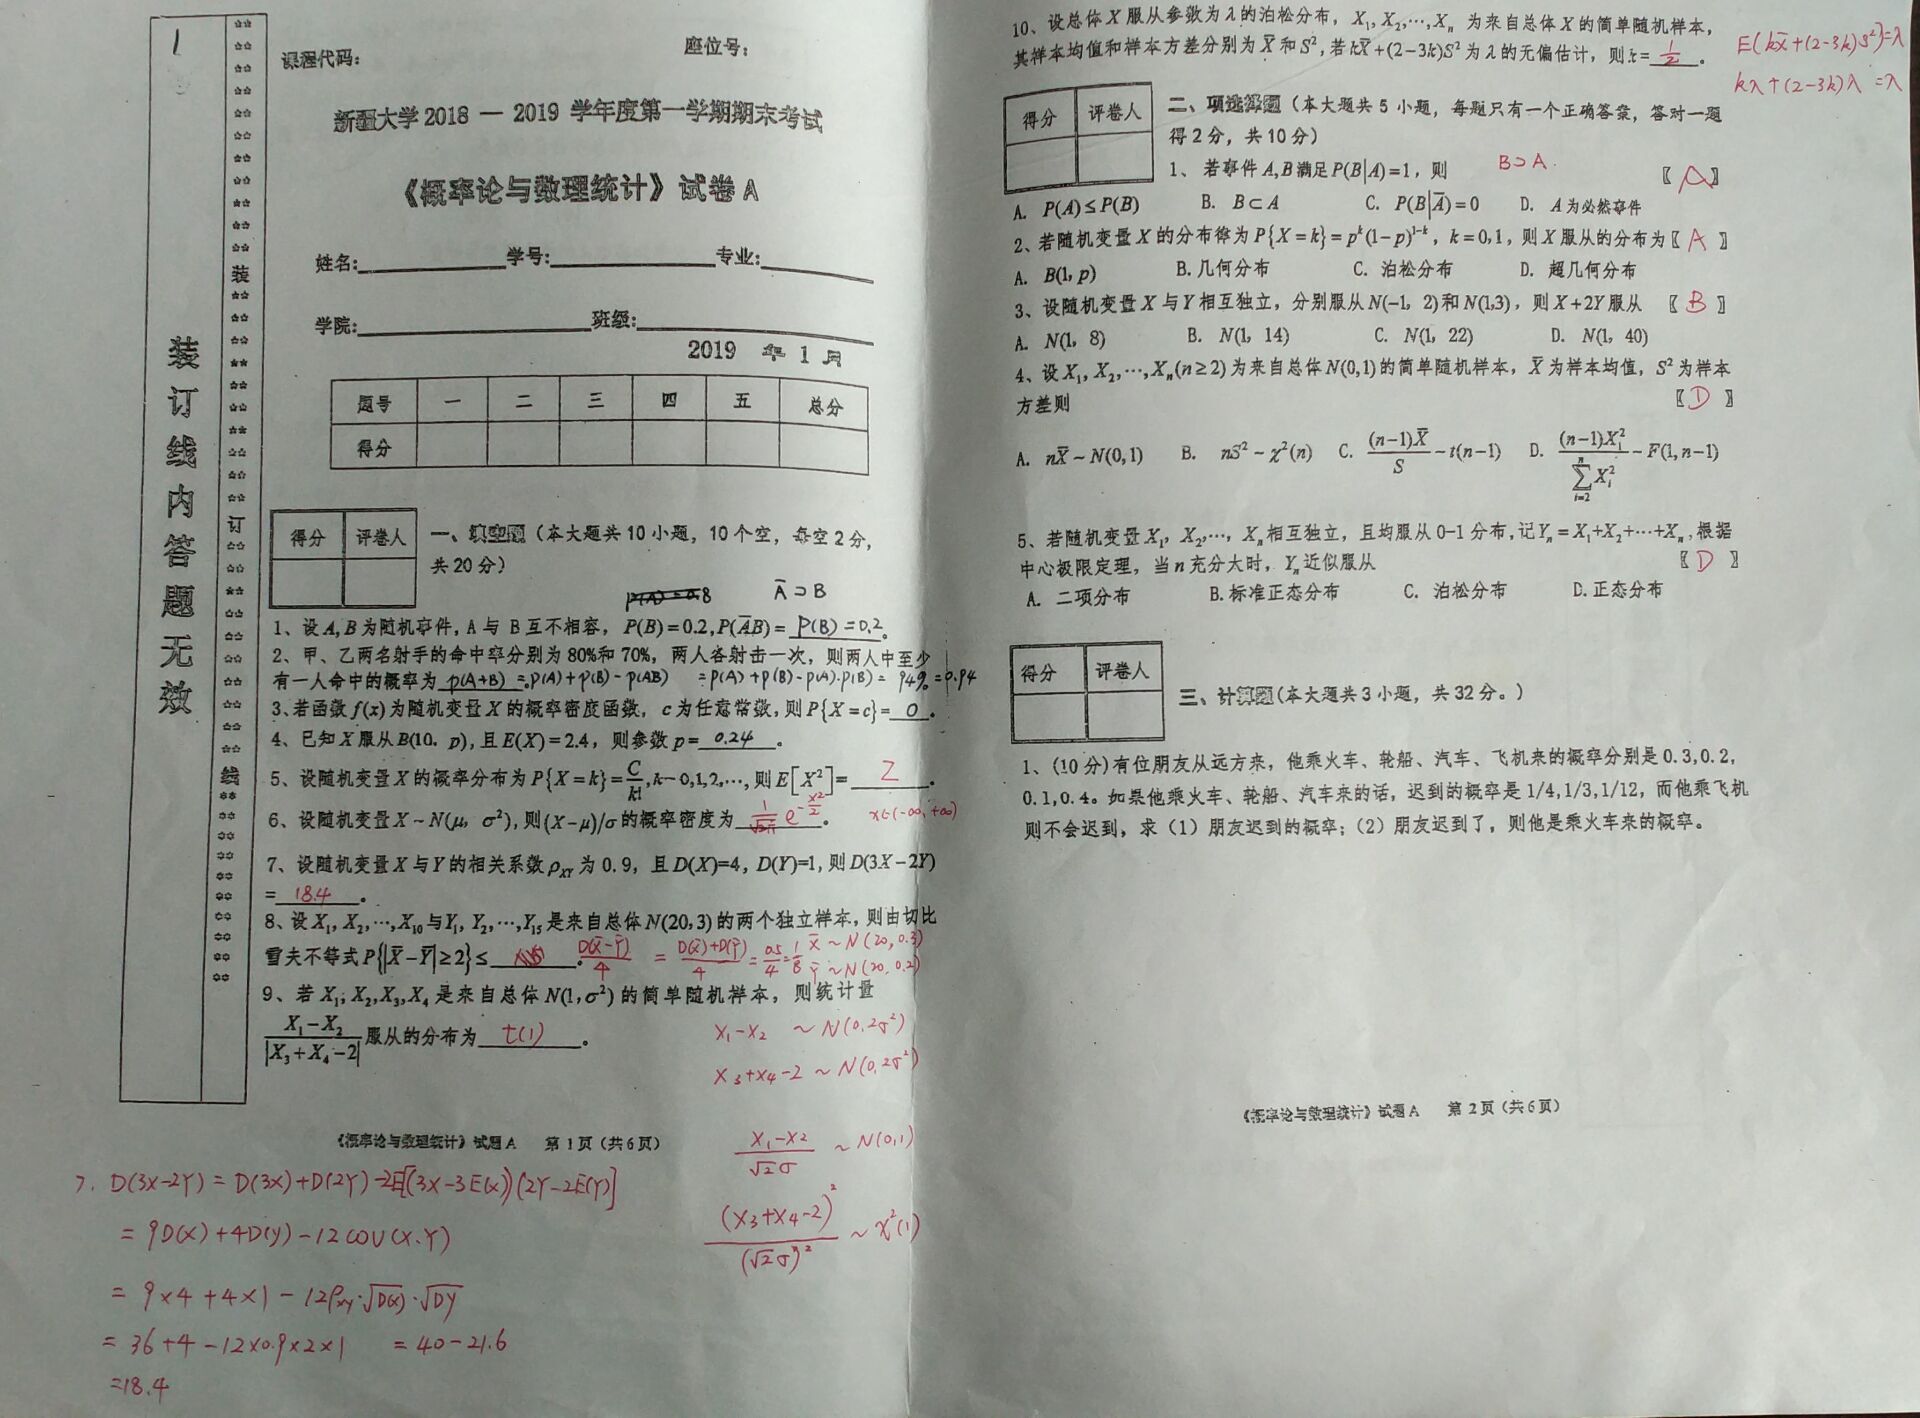 1
装订线内答题无效
装
订
线
课程代码:
座位号:
新疆大学2018 — 2019 学年度第一学期期末考试
《概率论与数理统计》试卷A
姓名:
学号:
专业:
学院:
班级:
2019 年 1 月
题号 一 二 三 四 五 总分
得分
得分 评卷人
一、填空题（本大题共10小题，10个空，每空2分，
共20分）
P(A)=0.8 Ā⊃B
1、设A,B为随机事件,A与 B互不相容， P(B)=0.2,P(ĀB)= P(B)=0.2.
2、甲、乙两名射手的命中率分别为80%和70%，两人各射击一次，则两人中至少
有一人命中的概率为 P(A+B) = P(A)+P(B)-P(AB) =P(A)+P(B)-P(A)·P(B)= 94% =0.94
3、若函数f(x)为随机变量X的概率密度函数，c为任意常数,则P{X=c}= 0 .
4、已知X服从B(10, p),且E(X)=2.4，则参数p= 0.24 .
5、设随机变量X的概率分布为P{X=k}=C/k!,k=0,1,2,⋯,则E[X²]= 2 .
6、设随机变量X~N(μ, σ²),则(X−μ)/σ的概率密度为 1/√2π e^(-x²/2) . x∈(-∞,+∞)
7、设随机变量X与Y的相关系数ρXY为0.9，且D(X)=4，D(Y)=1,则D(3X−2Y)
= 18.4 .
8、设X₁, X₂,⋯,X₁₀与Y₁, Y₂,⋯,Y₁₅是来自总体N(20,3)的两个独立样本,则由切比
雪夫不等式P{|X̄−Ȳ|≥2}≤ . D(X̄-Ȳ)/4 = D(X̄)+D(Ȳ)/4 = 0.5/4 = 1/8 X̄~N(20,0.3)
Ȳ~N(20,0.2)
9、若X₁,X₂,X₃,X₄是来自总体N(1,σ²)的简单随机样本，则统计量
(X₁−X₂)/|X₃+X₄−2| 服从的分布为 t(1) .
X₁-X₂ ~N(0,2σ²)
X₃+X₄-2 ~N(0,2σ²)
(X₁-X₂)/√2σ ~N(0,1)
(X₃+X₄-2)²/(√2σ)² ~χ²(1)
《概率论与数理统计》试题A 第1页（共6页）
7. D(3X-2Y) = D(3X)+D(2Y)-2E[(3X-3E(X))(2Y-2E(Y)]
= 9D(X)+4D(Y)-12COV(X.Y)
= 9×4+4×1-12ρxy·√D(X)·√DY
= 36+4-12×0.9×2×1 = 40-21.6
=18.4
10、设总体X服从参数为λ的泊松分布，X₁,X₂,⋯,Xₙ 为来自总体X的简单随机样本，
其样本均值和样本方差分别为X̄和S²,若kX̄+(2−3k)S²为λ的无偏估计，则k= 1/2 .
E(kX̄+(2-3k)S²)=λ
kλ+(2-3k)λ =λ
得分 评卷人
二、项选择题（本大题共5小题，每题只有一个正确答案，答对一题
得2分，共10分）
1、若事件A,B满足P(B|A)=1，则 B⊃A. 〖A〗
A. P(A)≤P(B) B. B⊂A C. P(B|Ā)=0 D. A为必然事件
2、若随机变量X的分布律为P{X=k}=pᵏ(1−p)¹⁻ᵏ，k=0,1，则X服从的分布为〖A〗
A. B(1, p) B.几何分布 C. 泊松分布 D. 超几何分布
3、设随机变量X与Y相互独立，分别服从N(−1, 2)和N(1,3)，则X+2Y服从 〖B〗
A. N(1, 8) B. N(1, 14) C. N(1, 22) D. N(1, 40)
4、设X₁, X₂,⋯,Xₙ(n≥2)为来自总体N(0,1)的简单随机样本，X̄为样本均值，S²为样本
方差则 〖D〗
A. nX̄~N(0,1) B. nS²~χ²(n) C. (n−1)X̄/S ~t(n−1) D. (n−1)X₁²/∑ᵢ₌₂ⁿXᵢ² ~F(1,n−1)
5、若随机变量X₁, X₂,⋯, Xₙ相互独立，且均服从0-1分布,记Yₙ=X₁+X₂+⋯+Xₙ,根据
中心极限定理，当n充分大时，Yₙ近似服从 〖D〗
A. 二项分布 B.标准正态分布 C. 泊松分布 D.正态分布
得分 评卷人
三、计算题(本大题共3小题，共32分。)
1、(10分)有位朋友从远方来，他乘火车、轮船、汽车、飞机来的概率分别是0.3,0.2,
0.1,0.4。如果他乘火车、轮船、汽车来的话，迟到的概率是1/4,1/3,1/12，而他乘飞机
则不会迟到，求（1）朋友迟到的概率；（2）朋友迟到了，则他是乘火车来的概率。
《概率论与数理统计》试题A 第2页（共6页）